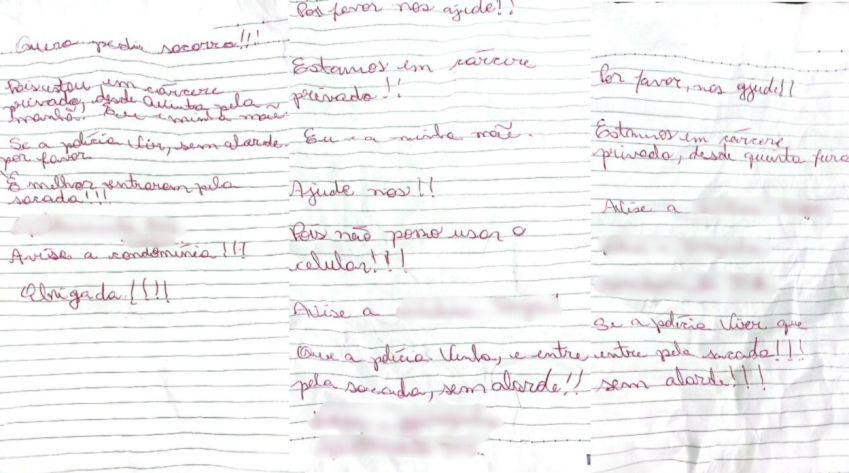 Quero pedir socorro!!!
Pois estou em cárcere
privado, desde Quinta pela
manhã. Eu e minha mãe
Se a polícia vir, sem alarde
por favor
É melhor entrarem pela
sacada!!!
Avise a condomínia!!!
Obrigada!!!!
Por favor nos ajude!!
Estamos em cárcere
privado!!
Eu e a minha mãe.
Ajude nos!!
Pois não posso usar o
celular!!!
Avise a
Que a polícia venha, e entre
pela sacada, sem alarde!!
Por favor, nos ajude!!
Estamos em cárcere
privado, desde quinta feira
Avise a
Se a polícia vier que
entre pela sacada!!!
sem alarde!!!